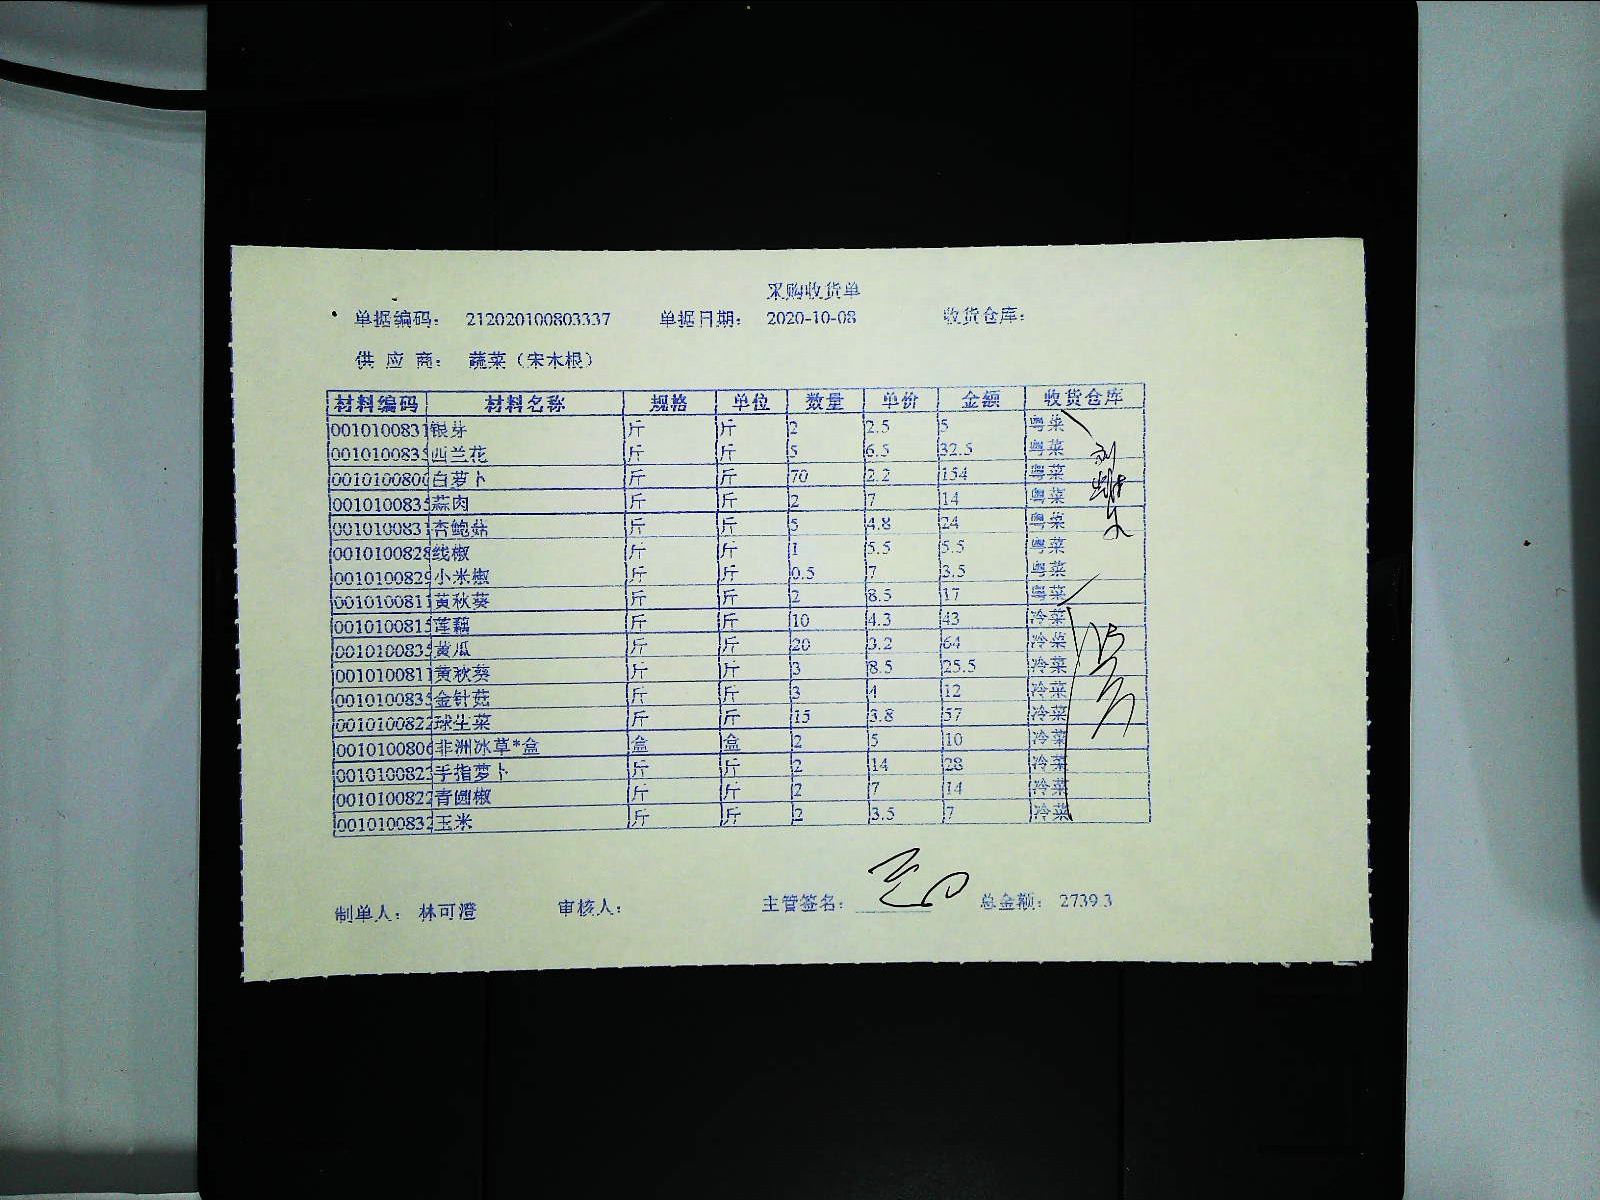 采购收货单
单据编码： 212020100803337 单据日期： 2020-10-08 收货仓库：
供 应 商： 蔬菜（宋木根）
材料编码 材料名称 规格 单位 数量 单价 金额 收货仓库
0010100831 银芽 斤 斤 2 2.5 5 粤菜
001010083 西兰花 斤 斤 5 6.5 32.5 粤菜
001010080 白萝卜 斤 斤 70 2.2 154 粤菜
001010083 蒜肉 斤 斤 2 7 14 粤菜
001010083 杏鲍菇 斤 斤 5 4.8 24 粤菜
0010100828 线椒 斤 斤 1 5.5 5.5 粤菜
0010100829 小米椒 斤 斤 0.5 7 3.5 粤菜
001010081 黄秋葵 斤 斤 2 8.5 17 粤菜
0010100815 莲藕 斤 斤 10 4.3 43 冷菜
001010083 黄瓜 斤 斤 20 3.2 64 冷菜
001010081 黄秋葵 斤 斤 3 8.5 25.5 冷菜
001010083 金针菇 斤 斤 3 4 12 冷菜
0010100822 球生菜 斤 斤 15 3.8 57 冷菜
001010080 非洲冰草*盒 盒 盒 2 5 10 冷菜
001010082 手指萝卜 斤 斤 2 14 28 冷菜
0010100822 青圆椒 斤 斤 2 7 14 冷菜
0010100832 玉米 斤 斤 2 3.5 7 冷菜
制单人： 林可澄 审核人： 主管签名： 总金额： 2739.3